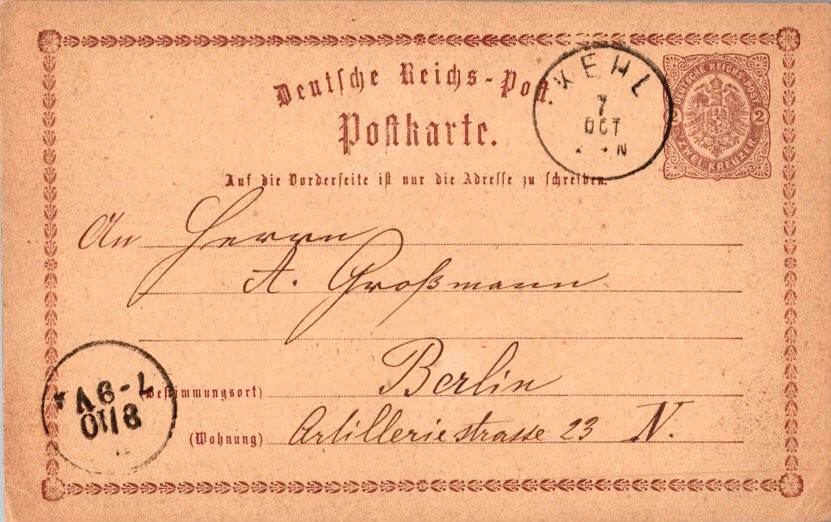 Deutsche Reichs-Post.
Postkarte.
Auf die Vorderseite ist nur die Adresse zu schreiben.
KEHL
7
OCT
N
DEUTSCHE REICHS-POST
2 2
ZWEI KREUZER
An Herrn
A. Großmann
Berlin
(Bestimmungsort)
(Wohnung) Artilleriestrasse 23 N.
7-9V.
8/10